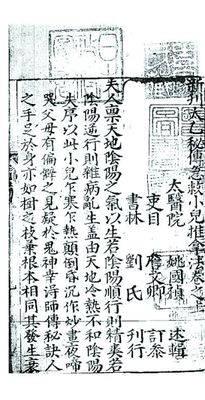 新刊太乙秘傳急救小兒推拿法卷之
太醫院 姚國禎 述輯
吏目 文卿 訂叅
書林 劉氏 刊行
夫人稟天地陰陽之氣以生若陰陽順行則精爽若
陰陽逆行則雜病亂生盖由天地冷熱不和陰陽
失序以此小兒乍寒乍熱顛倒昏沉作妙晝夜啼
哭父母有偏僻之見疑於鬼神幸得師傳秘訣人
之手足於身亦如樹之枝葉根本相同其發生衰